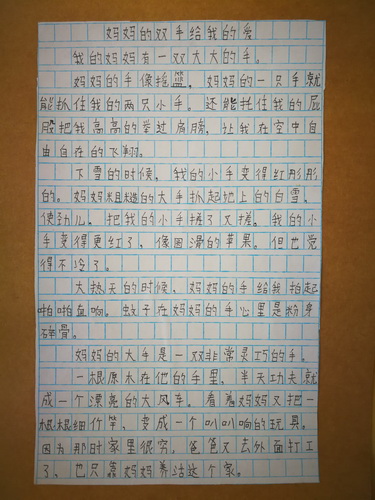 妈妈的双手给我的爱
我的妈妈有一双大大的手。
妈妈的手像拖篮。妈妈的一只手就
能抓住我的两只小手。还能托住我的屁
股把我高高的举过肩膀，让我在空中自
由自在的飞翔。
下雪的时候，我的小手变得红彤彤
的。妈妈粗糙的大手抓起地上的白雪，
使劲儿，把我的小手搓了又搓。我的小
手变得更红了，像圆滑的苹果。但也觉
得不冷了。
大热天的时候，妈妈的手给我拍起
啪啪直响。蚊子在妈妈的手心里是粉身
碎骨。
妈妈的大手是一双非常灵巧的手。
一根原木在他的手里，半天功夫就
成一个漂亮的大风车。看着妈妈又把一
根根细竹竿，变成一个叭叭响的玩具。
因为那时家里很穷。爸爸又去外面打工
了，也只靠妈妈养活这个家。